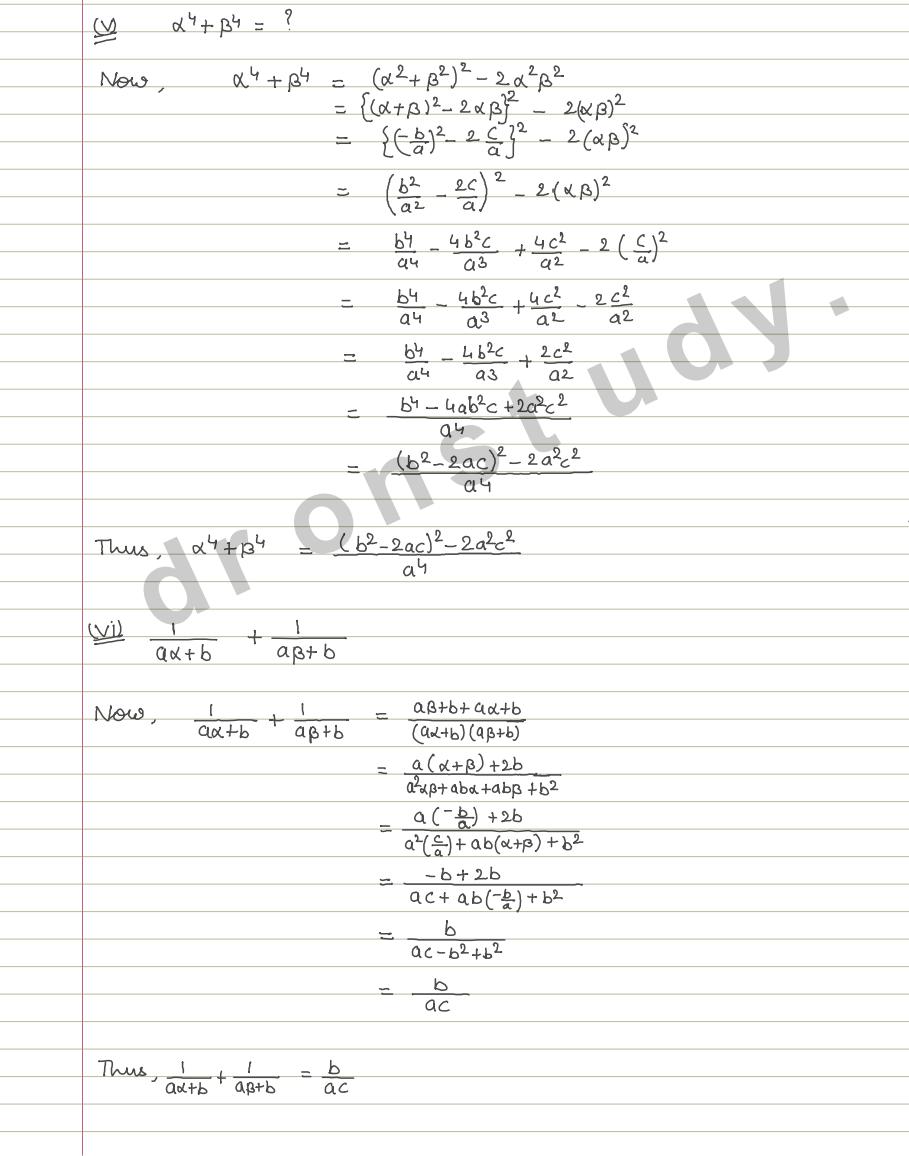 (v) α⁴ + β⁴ = ?
Now, α⁴ + β⁴ = (α² + β²)² - 2α²β²
= {(α+β)² - 2αβ}² - 2(αβ)²
= {(-b/a)² - 2 c/a}² - 2(αβ)²
= (b²/a² - 2c/a)² - 2(αβ)²
= b⁴/a⁴ - 4b²c/a³ + 4c²/a² - 2(c/a)²
= b⁴/a⁴ - 4b²c/a³ + 4c²/a² - 2c²/a²
= b⁴/a⁴ - 4b²c/a³ + 2c²/a²
= (b⁴ - 4ab²c + 2a²c²)/a⁴
= ((b² - 2ac)² - 2a²c²)/a⁴
Thus, α⁴ + β⁴ = ((b² - 2ac)² - 2a²c²)/a⁴
(vi) 1/(aα+b) + 1/(aβ+b)
Now, 1/(aα+b) + 1/(aβ+b) = (aβ+b+aα+b)/((aα+b)(aβ+b))
= (a(α+β)+2b)/(a²αβ+abα+abβ+b²)
= (a(-b/a)+2b)/(a²(c/a)+ab(α+β)+b²)
= (-b+2b)/(ac+ab(-b/a)+b²)
= b/(ac-b²+b²)
= b/ac
Thus, 1/(aα+b) + 1/(aβ+b) = b/ac
dronstudy.